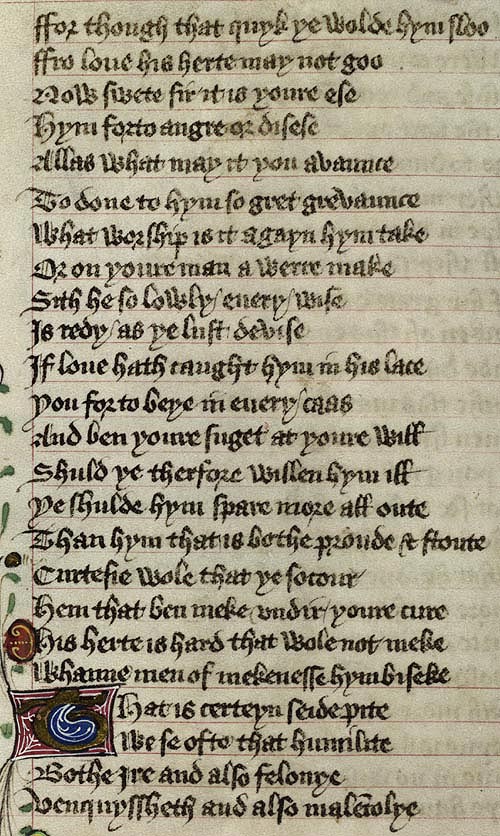 ffor though that quyk ye wolde hym sloo
ffro loue his herte may not goo
Now swete sir it is youre ese
Hym forto angre or disese
Allas what may it you avaunce
To done to hym so gret grevaunce
What worship is it agayn hym take
Or on youre man a werre make
Sith he so lowly / euery / wise
Is redy / as ye lust devise
If loue hath caught hym in his lace
you for to beye in euery / caas
And ben youre suget at youre will
Shuld ye therfore willen hym ill
Ye shulde hym spare more all oute
Than hym that is bothe proude & stoute
Curtesie wole that ye socour
Hem that ben meke vndir / youre cure
His herte is hard that wole not meke
Whanne men of mekenesse hym biseke
That is certeyn seide pite
We se ofte that humilite
Bothe Ire and also felonye
Venquyssheth and also malēcolye